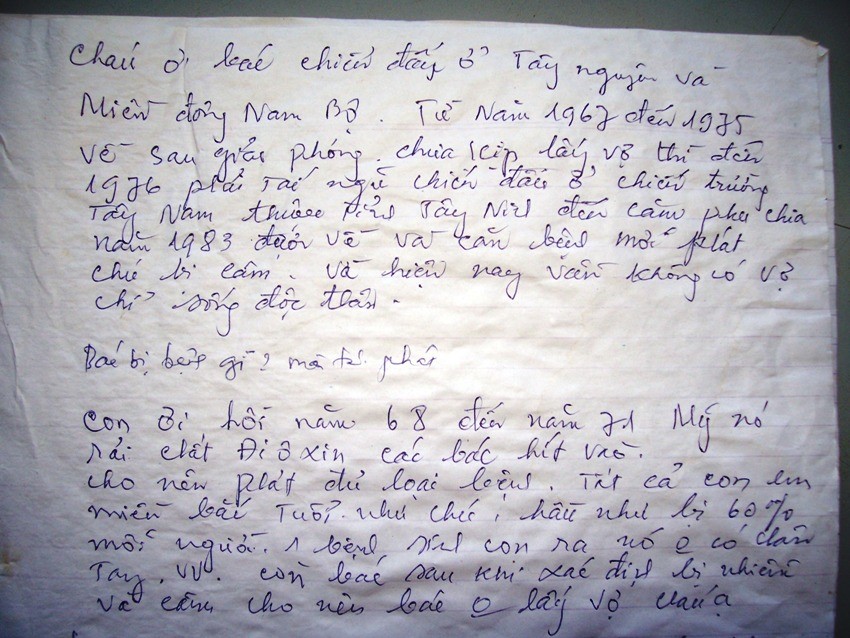 Cháu ơi bác chiến đấu ở Tây nguyên và
Miền đông Nam Bộ. Từ Năm 1967 đến 1975
về sau giải phóng. chưa kịp lấy vợ thì đến
1976 phải Tái ngũ chiến đấu ở chiến trường
Tây Nam thuộc tỉnh Tây Ninh đến căm pu chia
năm 1983 được về và căn bệnh mới phát
chú bị câm. và hiện nay vẫn không có vợ
chỉ sống độc thân.
Bác bị bệnh gì? mà phải
Con ơi hồi năm 68 đến năm 71 Mỹ nó
rải chất Đi ô xin các bác hít vào.
cho nên phát đủ loại bệnh. Tất cả con em
miền bắc Tuổi như chú, hầu như bị 60%
mỗi người. 1 bệnh sinh con ra nó o có chân
Tay. VV. còn bác sau khi xác định bị nhiễm
và câm cho nên bác o lấy vợ cháu ạ